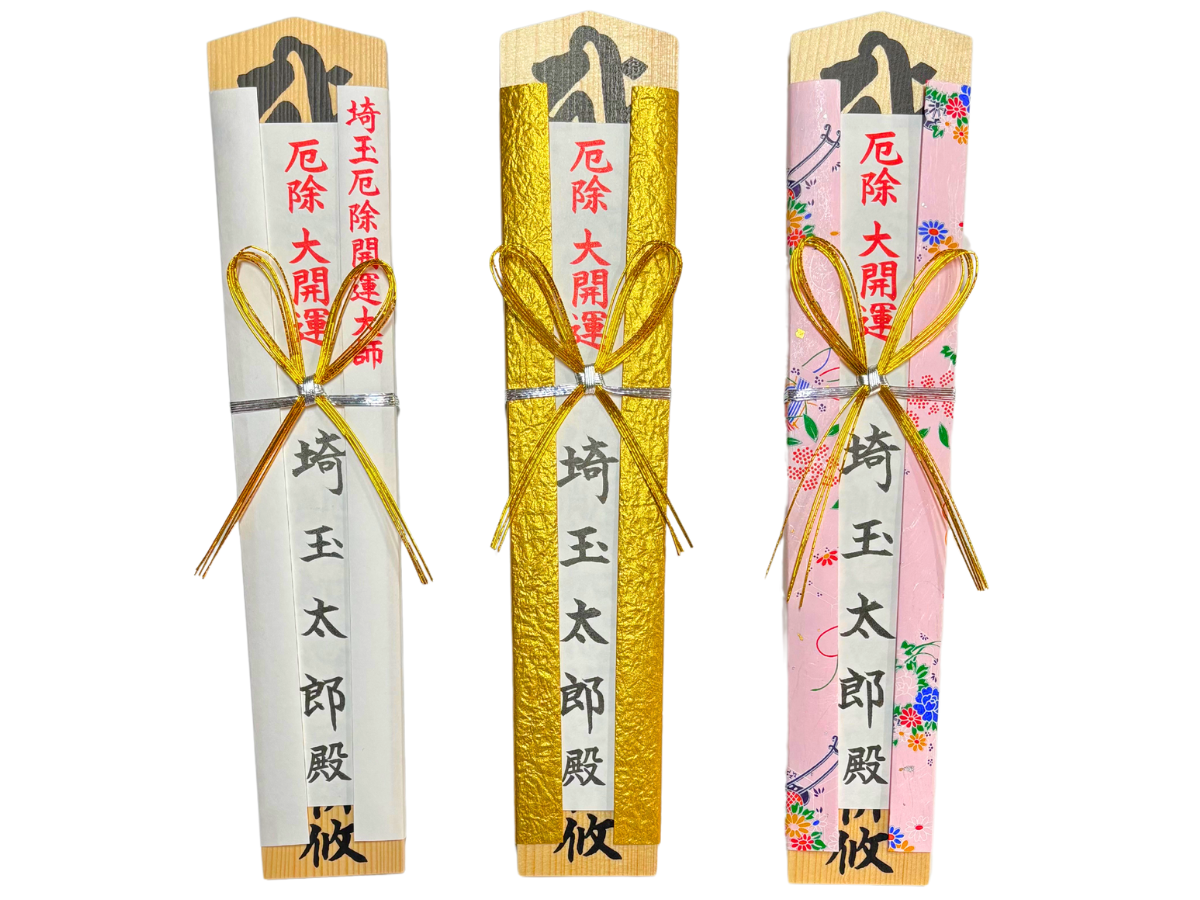 埼玉厄除開運大師
厄除 大開運
埼玉太郎殿
攸
厄除 大開運
埼玉太郎殿
攸
厄除 大開運
埼玉太郎殿
攸